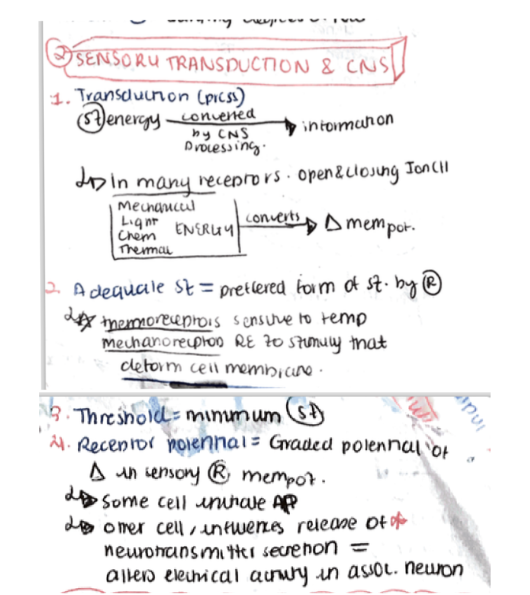 ② SENSORY TRANSDUCTION & CNS
1. Transduction (prcss)
(St) energy converted by CNS Processing. → information
↳ In many receptors. open&closing Ion Cll
Mechanical
Light
Chem
Thermal
ENERGY converts → Δ mempot.
2. Adequate St = preffered form of st. by Ⓡ
↳ thermoreceptors sensitive to temp
mechanoreceptoo RE to stimuly that
deform cell membrane.
3. Threshold = minimum (St)
4. Receptor potential = Graded potential of
Δ in sensory Ⓡ mempot.
↳ Some cell initiate AP
↳ other cell, influences release of
neurotransmitter secretion =
alters electrical activity in assoc. neuron